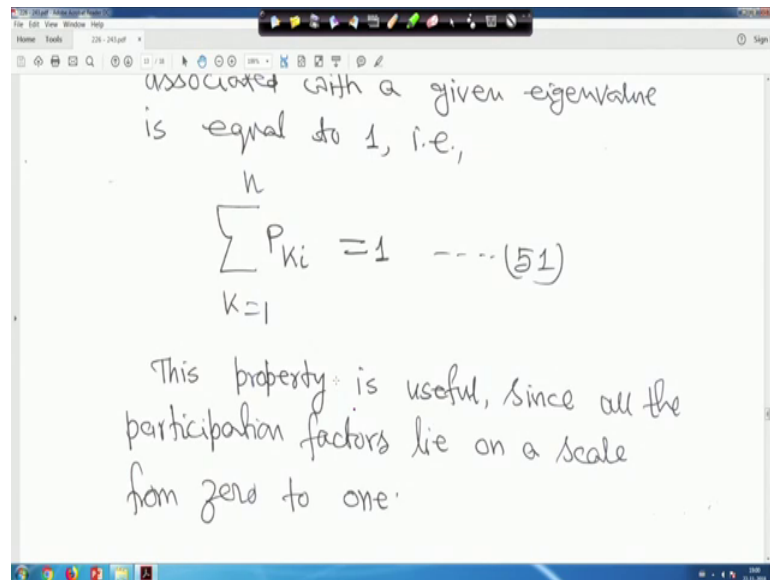 File Edit View Window Help
Home Tools 226 - 243.pdf × Sign
associated with a given eigenvalue
is equal to 1, i.e.,
n
∑ P_Ki = 1 ---- (51)
K=1
This property is useful, since all the
participation factors lie on a scale
from zero to one.